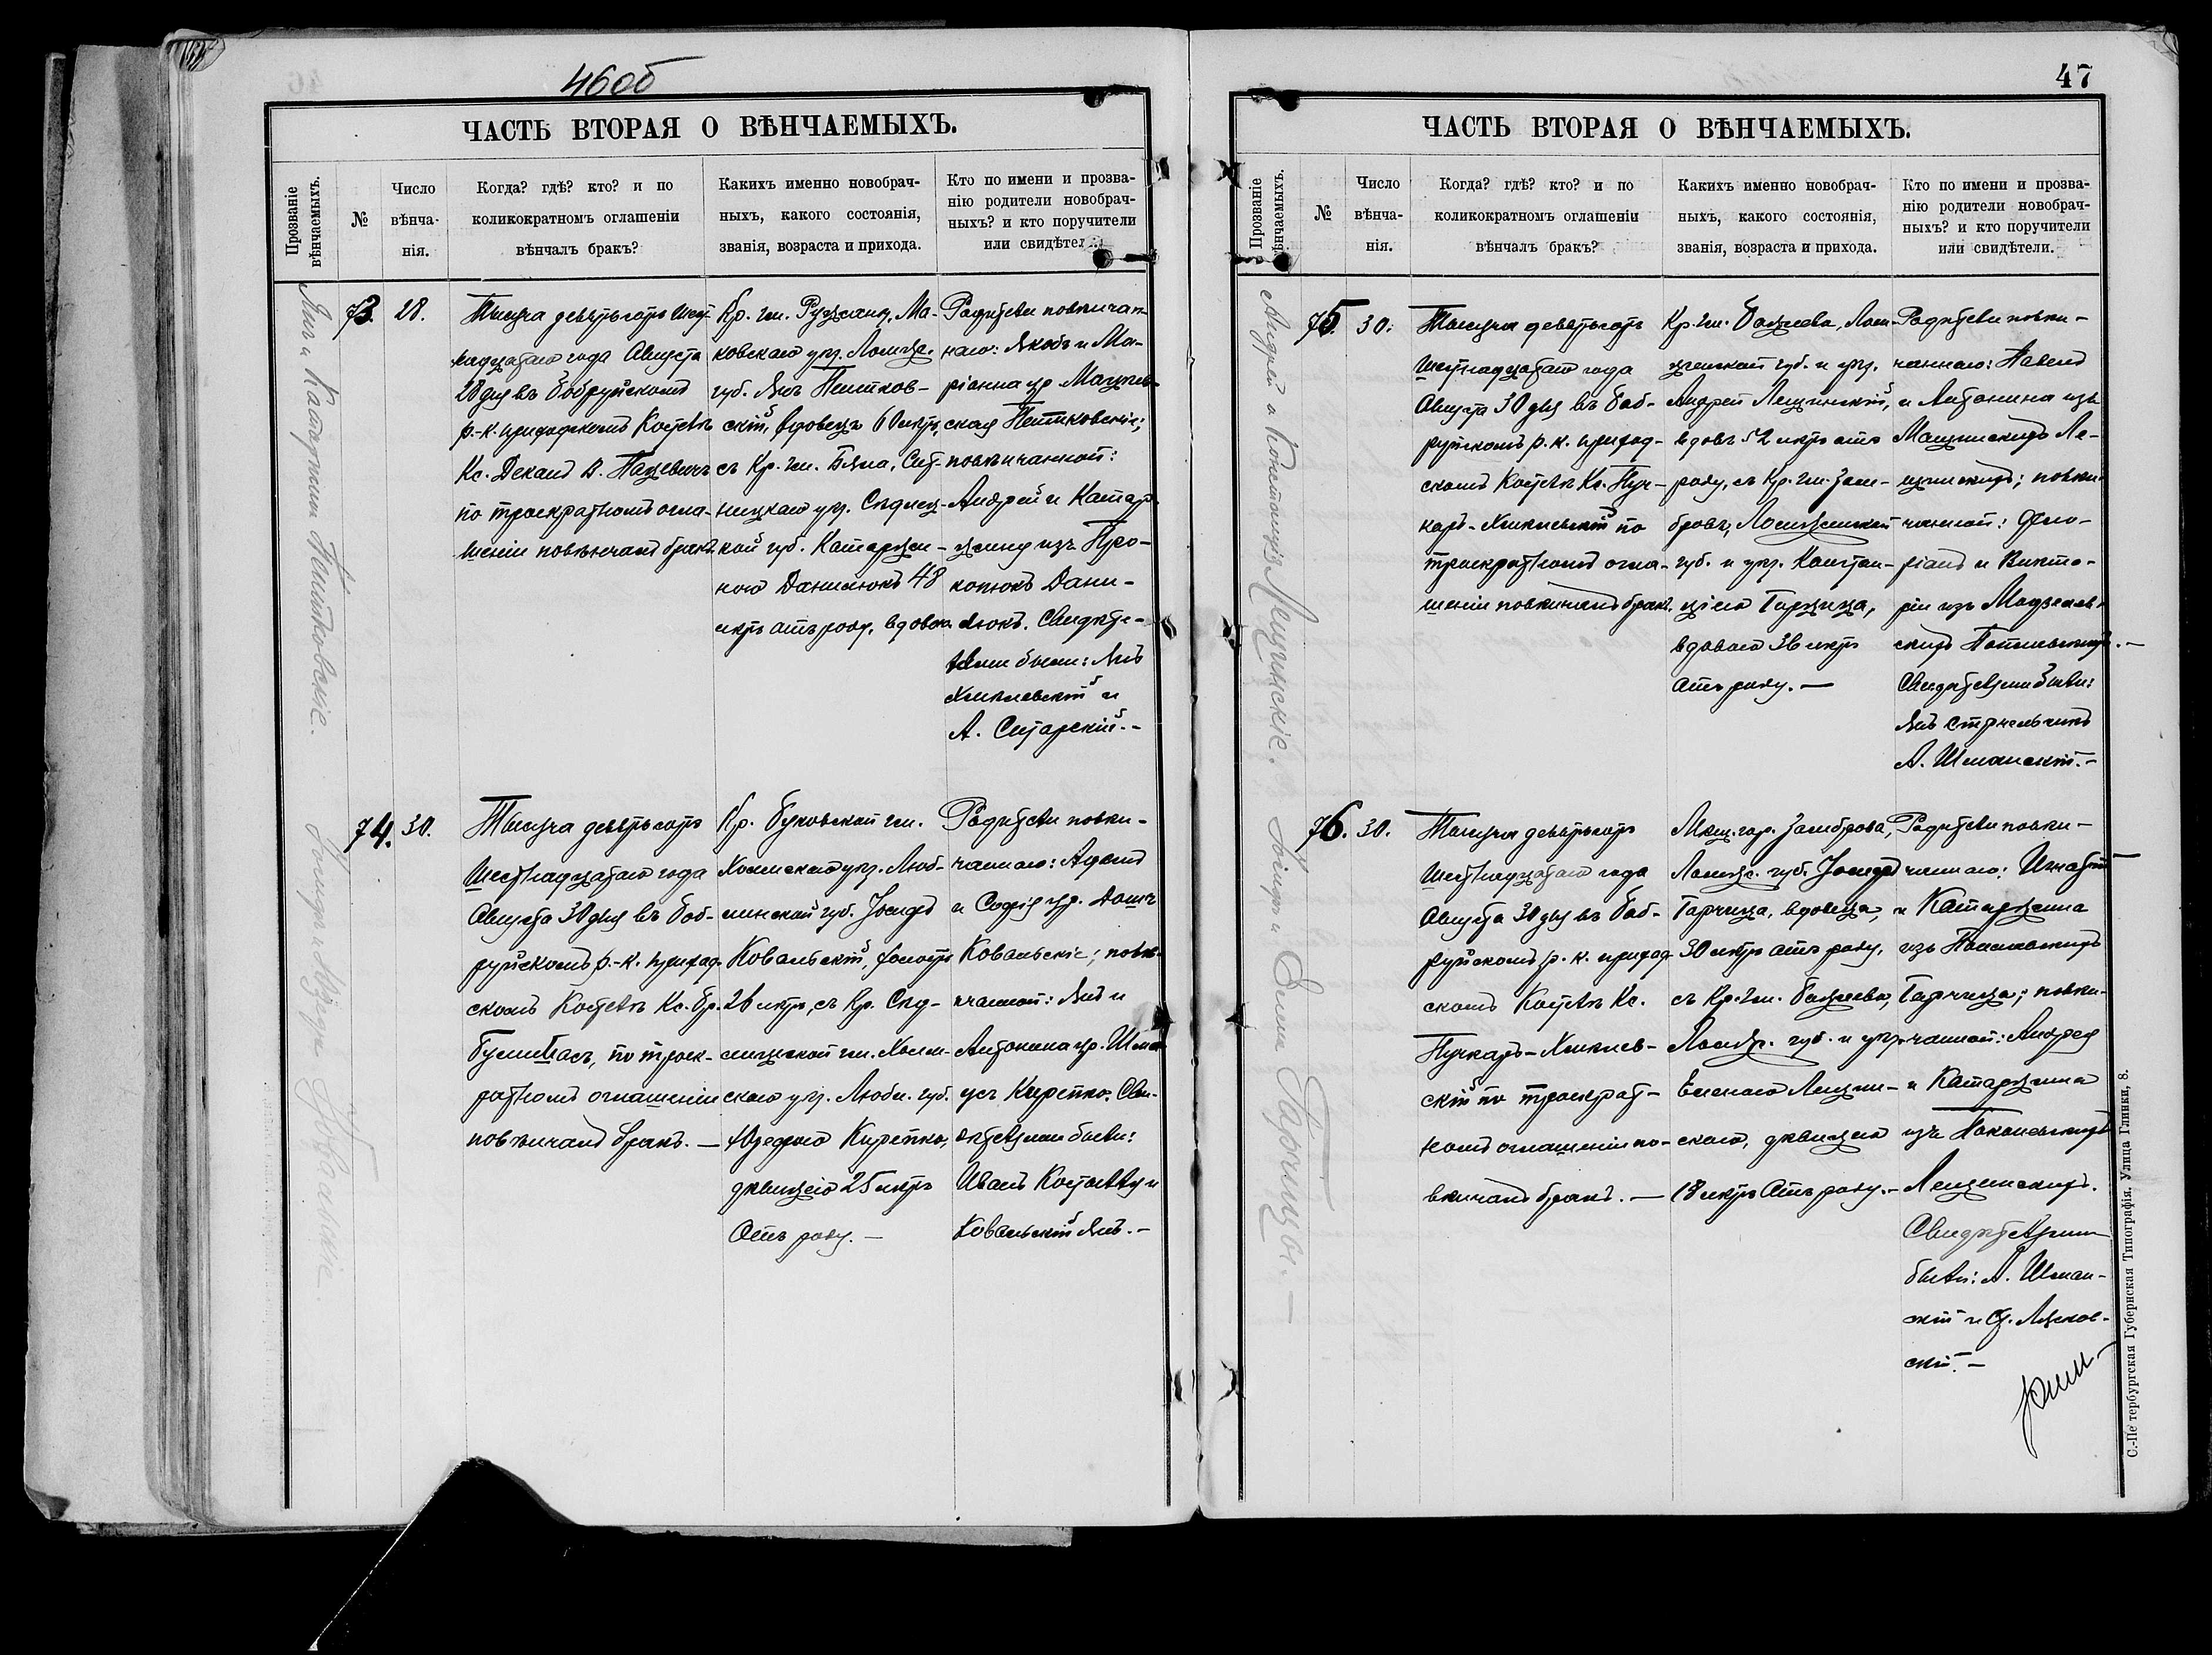 46об
ЧАСТЬ ВТОРАЯ О ВѢНЧАЕМЫХЪ.
Прозваніе вѣнчаемыхъ.
№
Число вѣнча-
нія.
Когда? гдѣ? кто? и по
коликократномъ оглашеніи
вѣнчалъ бракъ?
Какихъ именно новобрач-
ныхъ, какого состоянія,
званія, возраста и прихода.
Кто по имени и прозва-
нію родители новобрач-
ныхъ? и кто поручители
или свидѣтел
Янъ и Катаржина
73.
28.
Тысяча девятьсотъ шест-
надцатаго года Августа
28 дня въ Бобруйскомъ
р.-к. приходскомъ Костелѣ
Кс. Деканъ
по троекратномъ огла-
шеніи повѣнчалъ бракъ
Кр. гм. Ма-
ковскаго уѣз. Ломж.
губ. Янъ
скій, вдовецъ 60 лѣтъ,
съ Кр. гм.
уѣз. Сѣдлец-
кой губ. Катаржи-
ною Данилюкъ 48
лѣтъ отъ роду, вдовою
Родители повѣнчан-
наго: Якобъ и Ма-
ріанна ур.
повѣнчанной:
Андрей и Катар-
жина изъ Про-
копюкъ Дани-
люкъ. Свидѣте-
лями были: Янъ
Хмѣлевскій и
А. Ситарскій.-
Іосифъ и Юзефа Ковальскіе.
74.
30.
Тысяча девятьсотъ
шестнадцатаго года
Августа 30 дня въ Боб-
руйскомъ р.-к. приход-
скомъ Костелѣ Кс.
по троек-
ратномъ оглашеніи
повѣнчалъ бракъ. —
Кр. Буковской гм.
Холмскаго уѣз. Люб-
линской губ. Іосифъ
Ковальскій, холостъ
26 лѣтъ, съ Кр.
гм. Холм-
скаго уѣз. Любл. губ.
Юзефою
дѣвицею 25 лѣтъ
отъ роду. —
Родители повѣн-
чаннаго: Адамъ
и Софія ур.
Ковальскіе; повѣ-
нчанной: Янъ и
Антонина ур.
Сви-
дѣтелями были:
Иванъ и
Ковальскій Янъ.-
47
ЧАСТЬ ВТОРАЯ О ВѢНЧАЕМЫХЪ.
Прозваніе вѣнчаемыхъ.
№
Число
вѣнча-
нія.
Когда? гдѣ? кто? и по
коликократномъ оглашеніи
вѣнчалъ бракъ?
Какихъ именно новобрач-
ныхъ, какого состоянія,
званія, возраста и прихода.
Кто по имени и прозва-
нію родители новобрач-
ныхъ? и кто поручители
или свидѣтели.
Андрей и Констанція Лещинскіе.
75.
30.
Тысяча девятьсотъ
шестнадцатаго года
Августа 30 дня въ Боб-
руйскомъ р. к. приход-
скомъ Костелѣ Кс. Пуч-
каръ-Хмѣлевскій по
троекратномъ огла-
шеніи повѣнчалъ бракъ.
Кр. гм. Лом-
жинской губ. и уѣз.
Андрей Лещинскій,
вдовъ 52 лѣтъ отъ
роду, съ Кр. гм. Зам-
бровъ, Ломжинской
губ. и уѣз. Констан-
ціею Гарчица,
вдовою 36 лѣтъ
отъ роду. —
Родители повѣн-
чаннаго: Павелъ
и Антонина изъ
Ле-
щинскихъ; повѣн-
чанной: Фло-
ріанъ и Викто-
рія изъ
Свидѣтелями были:
Янъ Стрѣльчикъ
А. Шманскій.-
Іосифъ и Елена Гарчица. —
76.
30.
Тысяча девятьсотъ
шестнадцатаго года
Августа 30 дня въ Боб-
руйскомъ р. к. приход-
скомъ Костелѣ Кс.
Пучкаръ-Хмѣлев-
скій по троекрат-
номъ оглашеніи по-
вѣнчалъ бракъ. —
Мѣщ. гор. Замброва,
Ломж. губ. Іосифъ
Гарчица, вдовецъ,
30 лѣтъ отъ роду,
съ Кр. гм.
Ломж. губ. и уѣз.
Еленою Лещин-
скою, дѣвицею
18 лѣтъ отъ роду.-
Родители повѣн-
чаннаго: Игнатій
и Катаржина
изъ
Гарчица; повѣн-
чанной: Андрей
и Катаржина
изъ
Лещинскихъ.
Свидѣтелями
были: А. Шман-
скій и
скій.-
С.-Петербургская Губернская Типографія. Улица Глинки, 8.